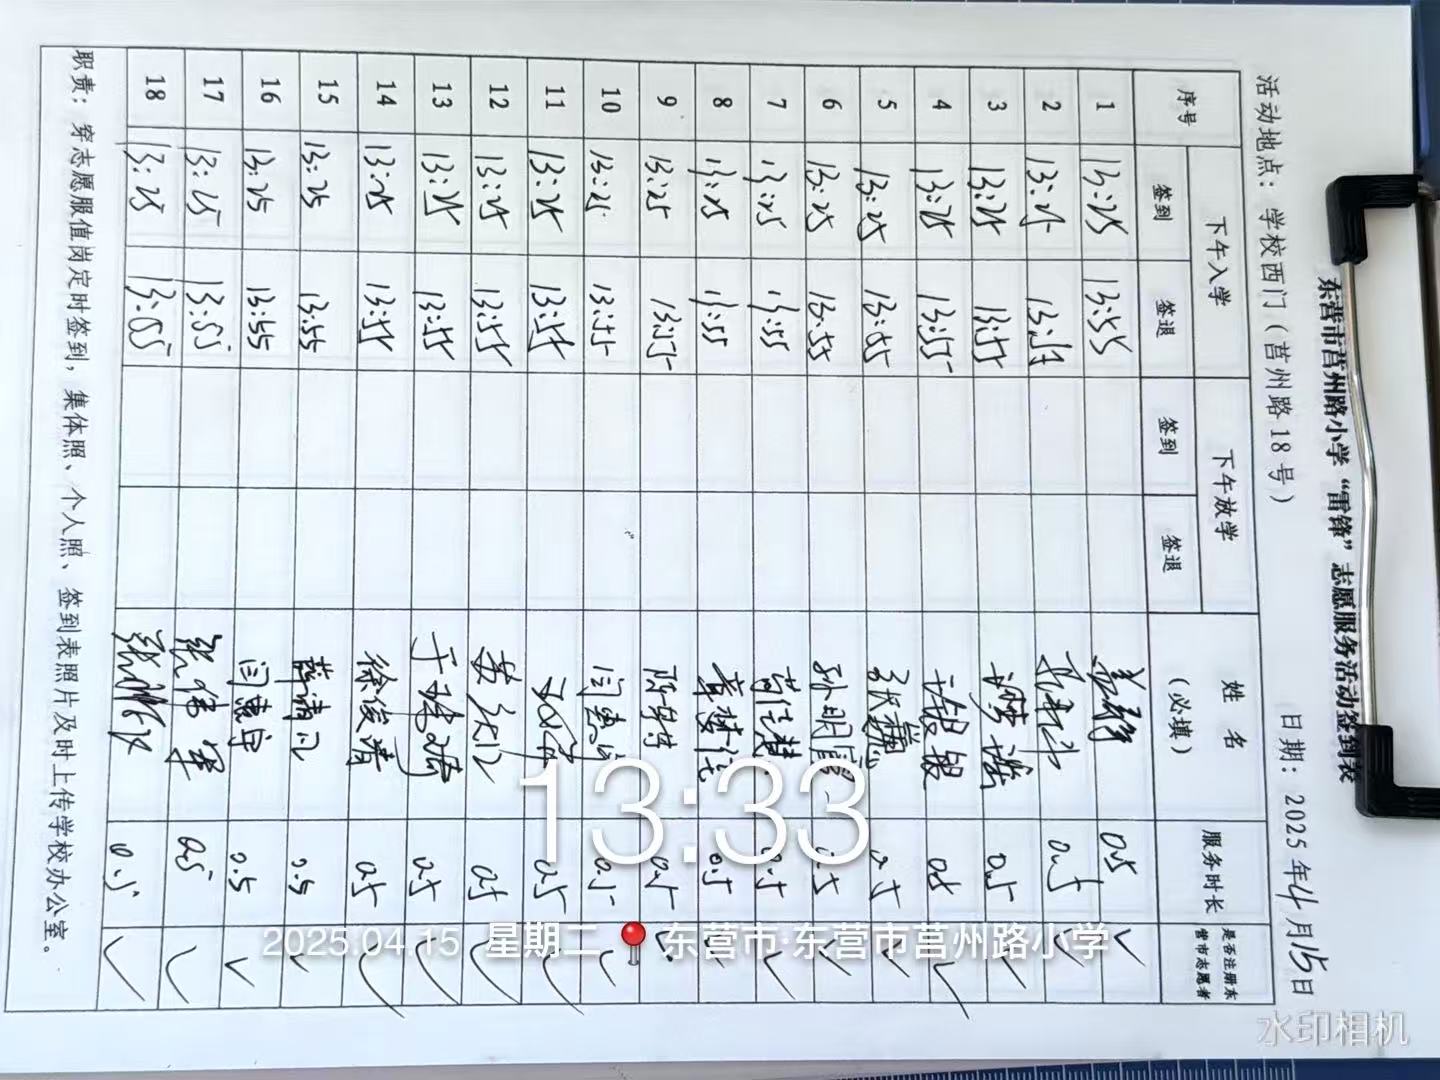 东营市莒州路小学“雷锋”志愿服务活动签到表
活动地点：学校西门（莒州路18号） 日期：2025年4月15日
序号 下午入学 下午放学 姓名（必填） 服务时长 是否注册东营市志愿者
签到 签退 签到 签退
1 13:25 13:55 0.5 ✓
2 13:25 13:55 0.5 ✓
3 13:25 13:55 0.5 ✓
4 13:25 13:55 0.5 ✓
5 13:25 13:55 0.5 ✓
6 13:25 13:55 0.5 ✓
7 13:25 13:55 0.5 ✓
8 13:25 13:55 0.5 ✓
9 13:25 13:55 0.5 ✓
10 13:25 13:55 0.5 ✓
11 13:25 13:55 0.5 ✓
12 13:25 13:55 0.5 ✓
13 13:25 13:55 0.5 ✓
14 13:25 13:55 徐俊清 0.5 ✓
15 13:25 13:55 0.5 ✓
16 13:25 13:55 闫慧宇 0.5 ✓
17 13:25 13:55 0.5 ✓
18 13:25 13:55 0.5 ✓
职责：穿志愿服值岗定时签到，集体照、个人照、签到表照片及时上传学校办公室。
13:33
2025.04.15 星期二 东营市·东营市莒州路小学
水印相机